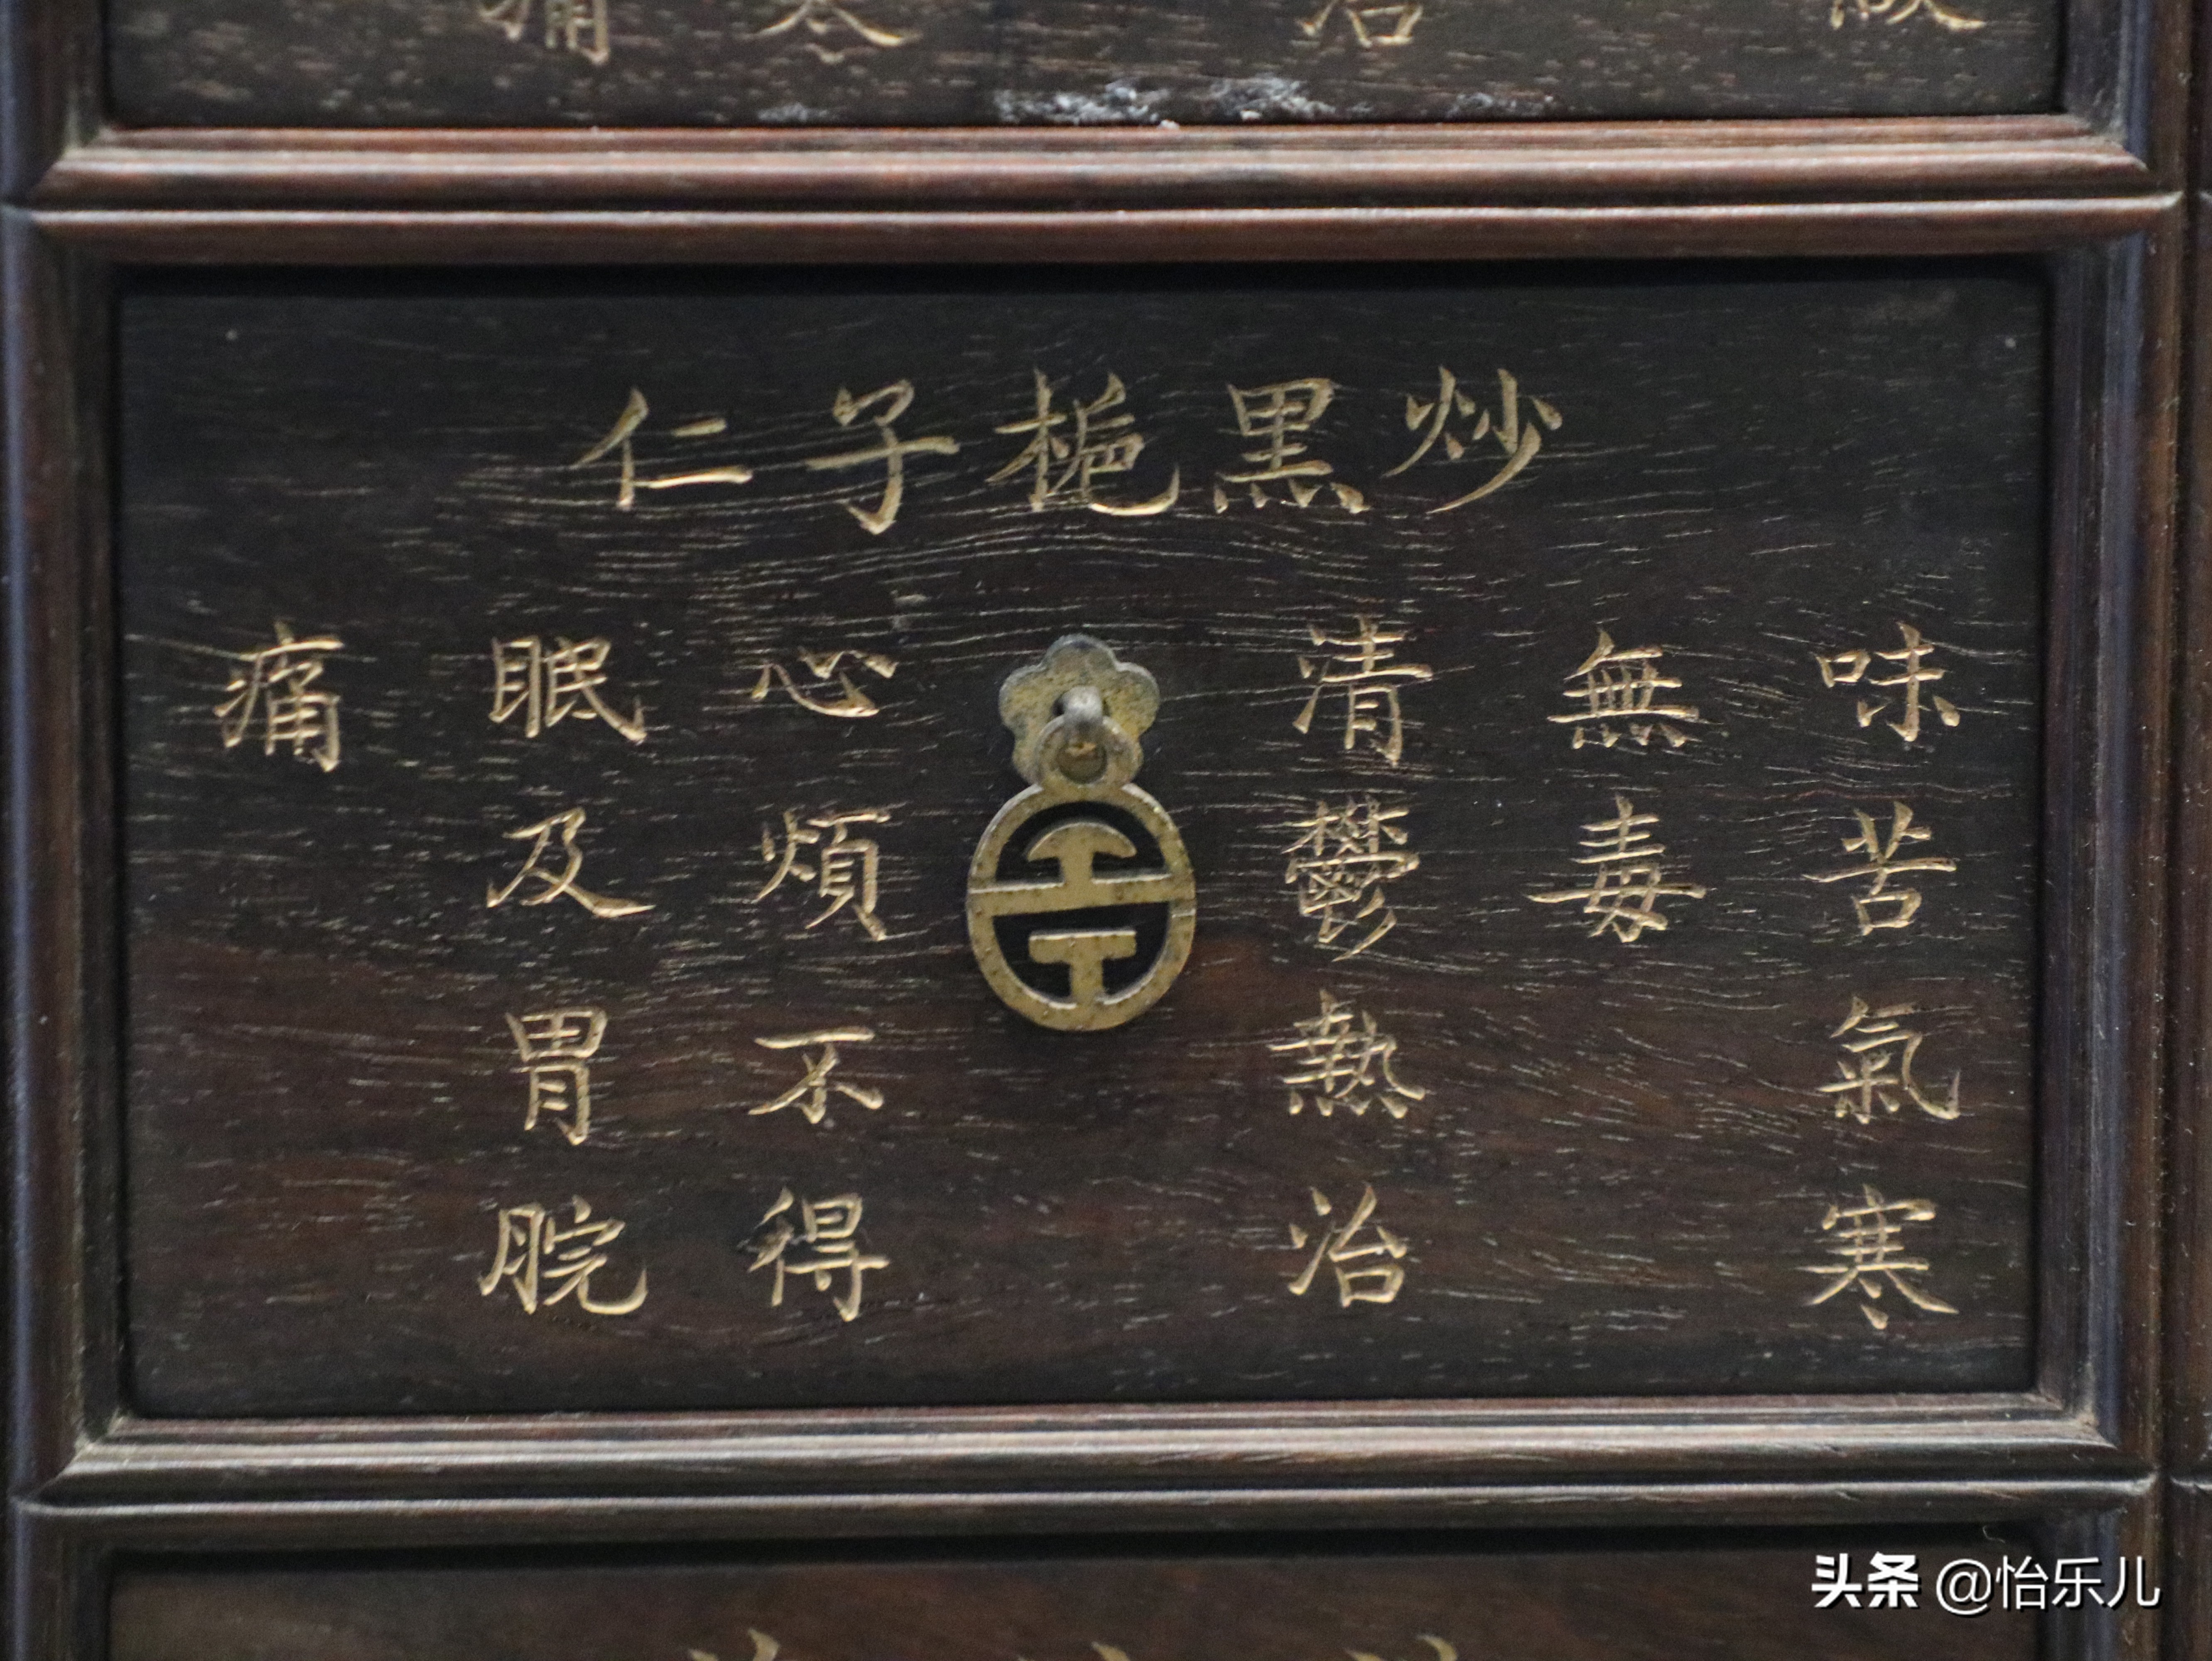 炒黑梔子仁
味苦氣寒
無毒
清鬱熱治
心煩不得
眠及胃脘
痛
头条 @怡乐儿